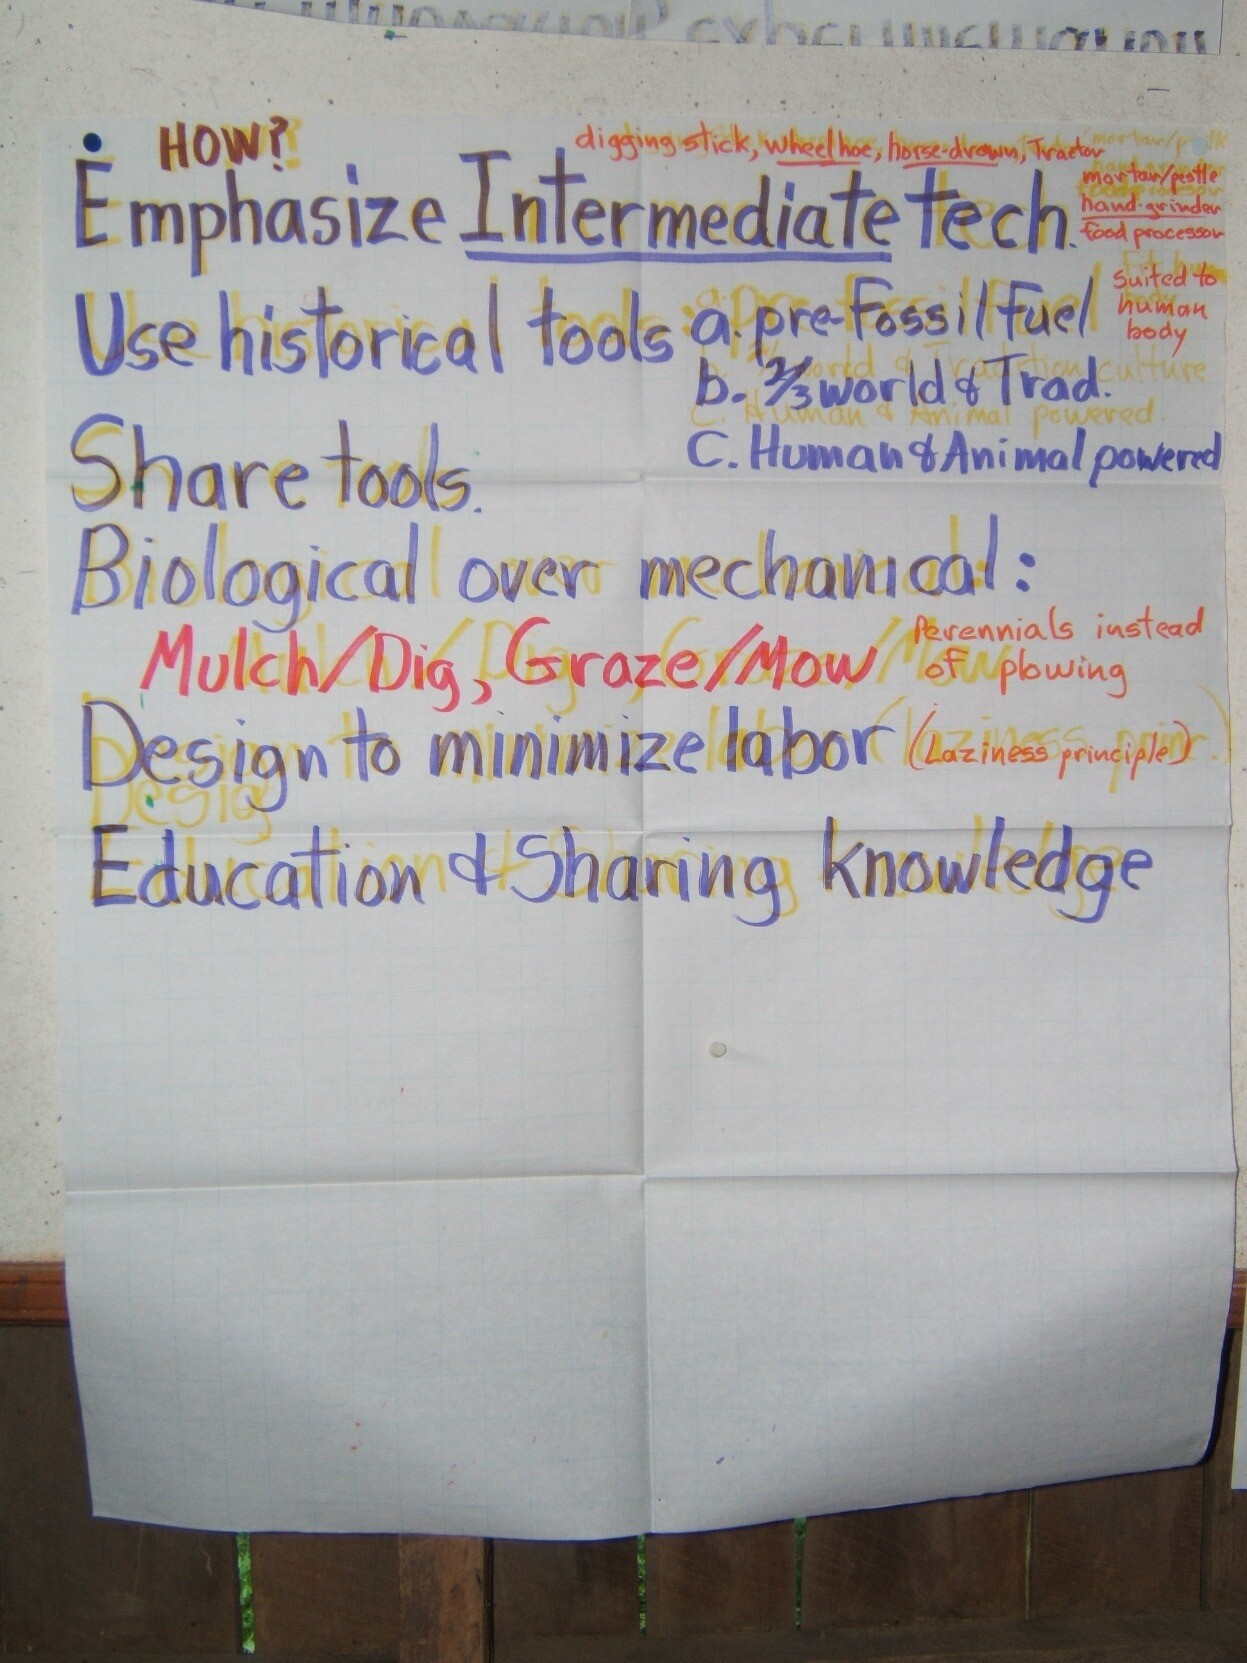 HOW?
digging stick, wheel hoe, horse-drawn, Tractor
Emphasize Intermediate tech.
mortar/pestle
hand-grinder
food processor
suited to
human
body
Use historical tools a. pre-Fossil Fuel
b. 2/3 world & Trad.
C. Human & Animal powered
Share tools.
Biological over mechanical:
Mulch/Dig, Graze/Mow
Perennials instead
of plowing
Design to minimize labor (Laziness principle)
Education & Sharing knowledge